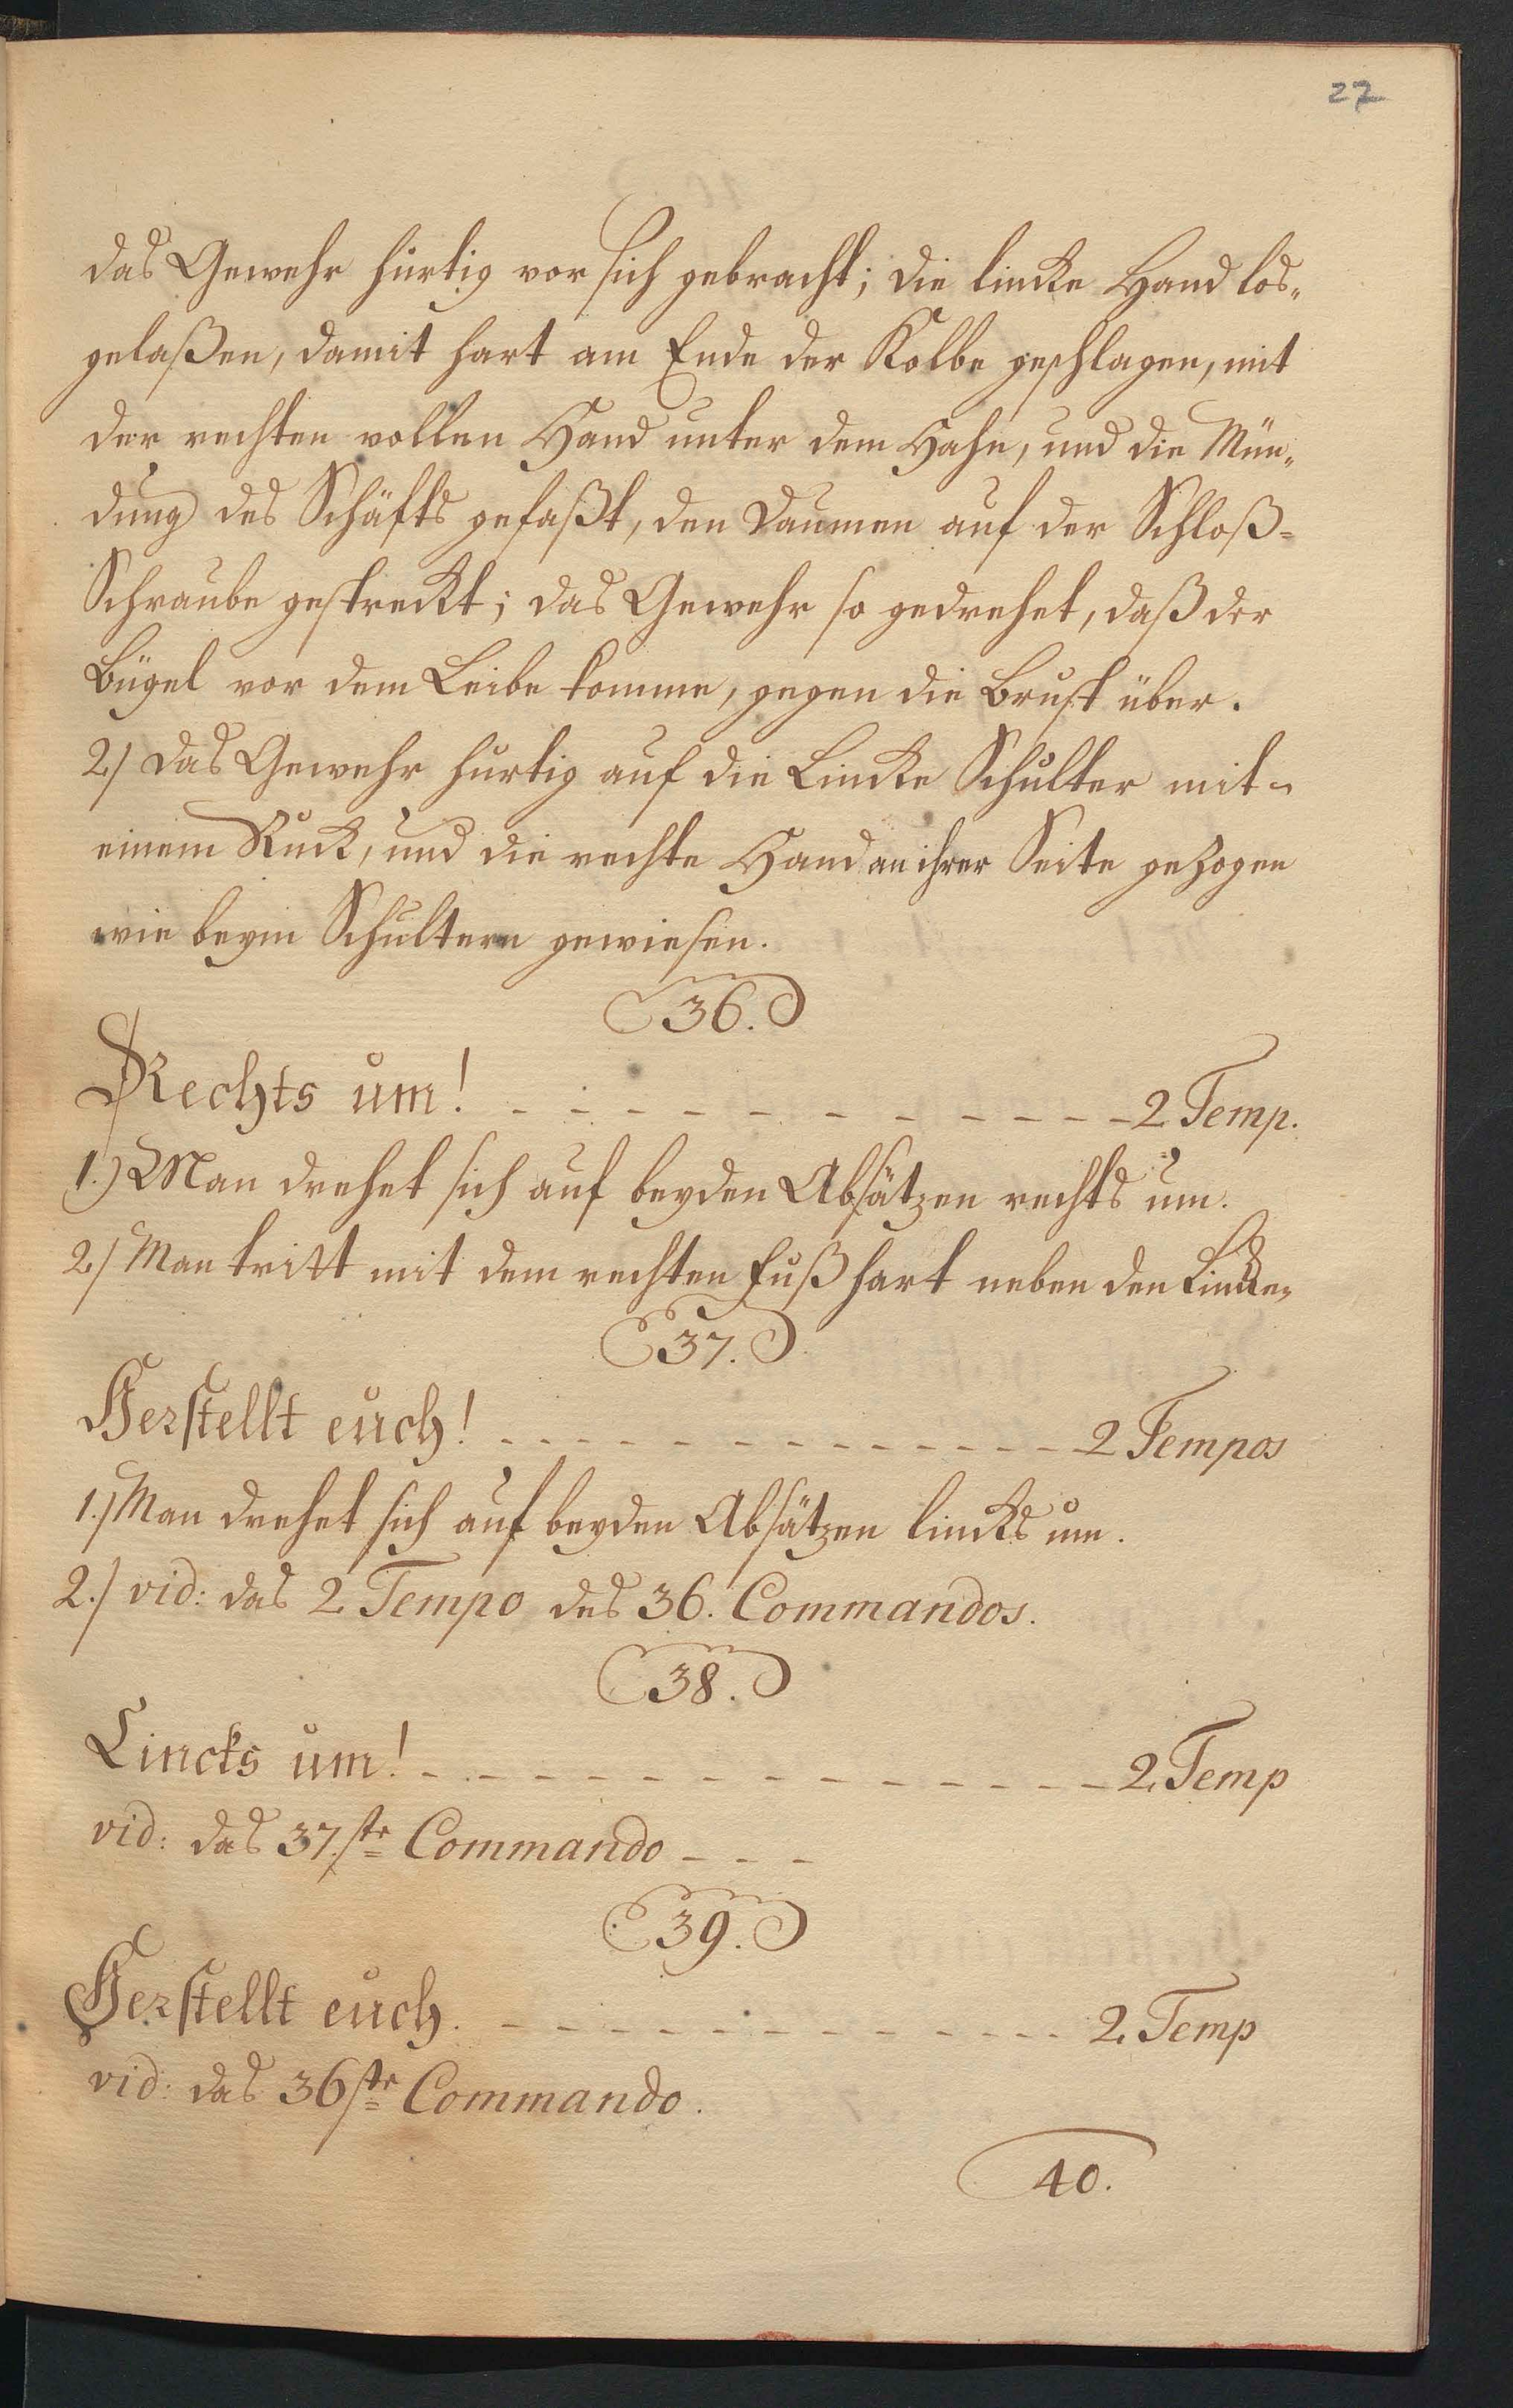 27
das Gewehr hurtig vor sich gebracht; die lincke Hand los„
gelaßen, damit hart am Ende der Kolbe geschlagen, mit
der rechten vollen Hand unter dem Hahn, und die Mün„
dung des Schäfts gefaßt, den Daumen auf der Schloß=
Schraube gestreckt; das Gewehr so gedrehet, daß der
Bügel vor dem Leibe komme, gegen die Brust über.
2./ Das Gewehr hurtig auf die Lincke Schulter mit
einem Ruck, und die rechte Hand an ihrer Seite gezogen
wie beym Schultern gewiesen.
36.
Rechts um! - - - - - - - - - - - - 2 Temp.
1.) Man drehet sich auf beyden Absätzen rechts um.
2./ Man tritt mit dem rechten Fuß hart neben den Lincken
37.
Herstellt euch! - - - - - - - - - - - 2 Tempos
1./ Man drehet sich auf beyden Absätzen lincks um.
2./ vid: das 2 Tempo des 36. Commandos.
38.
Lincks um! - - - - - - - - - - - - - 2. Temp
vid: das 37.ste Commando - - -
39.
Herstellt euch. - - - - - - - - - - - 2. Temp
vid: das 36ste Commando.
40.